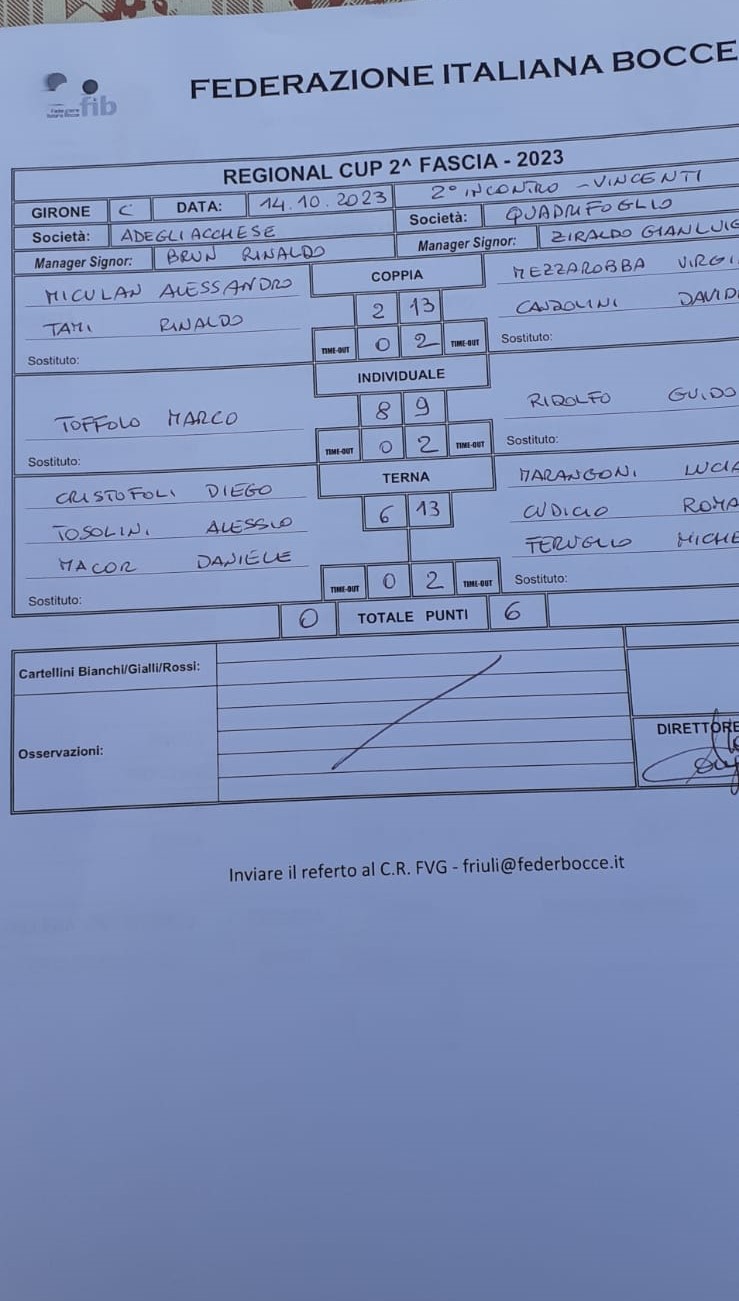 fib
FEDERAZIONE ITALIANA BOCCE
REGIONAL CUP 2^ FASCIA - 2023
GIRONE C DATA: 14.10.2023 2° INCONTRO - VINCENTI
Società: ADEGLIACCHESE Società: QUADRIFOGLIO
Manager Signor: BRUN RINALDO Manager Signor: ZIRALDO GIANLUIG
COPPIA
MICULAN ALESSANDRO MEZZAROBBA VIRGI
2 13
TAMI RINALDO DAVID
Sostituto: TIME-OUT 0 2 TIME-OUT Sostituto:
INDIVIDUALE
TOFFOLO MARCO 8 9 RIDOLFO GUIDO
Sostituto: TIME-OUT 0 2 TIME-OUT Sostituto:
TERNA
CRISTOFOLI DIEGO MARANGONI LUCIA
TOSOLINI ALESSIO 6 13 CUDICIO ROMA
MACOR DANIELE FERUGLIO MICHE
Sostituto: TIME-OUT 0 2 TIME-OUT Sostituto:
0 TOTALE PUNTI 6
Cartellini Bianchi/Gialli/Rossi:
Osservazioni:
DIRETTORE
Inviare il referto al C.R. FVG - friuli@federbocce.it